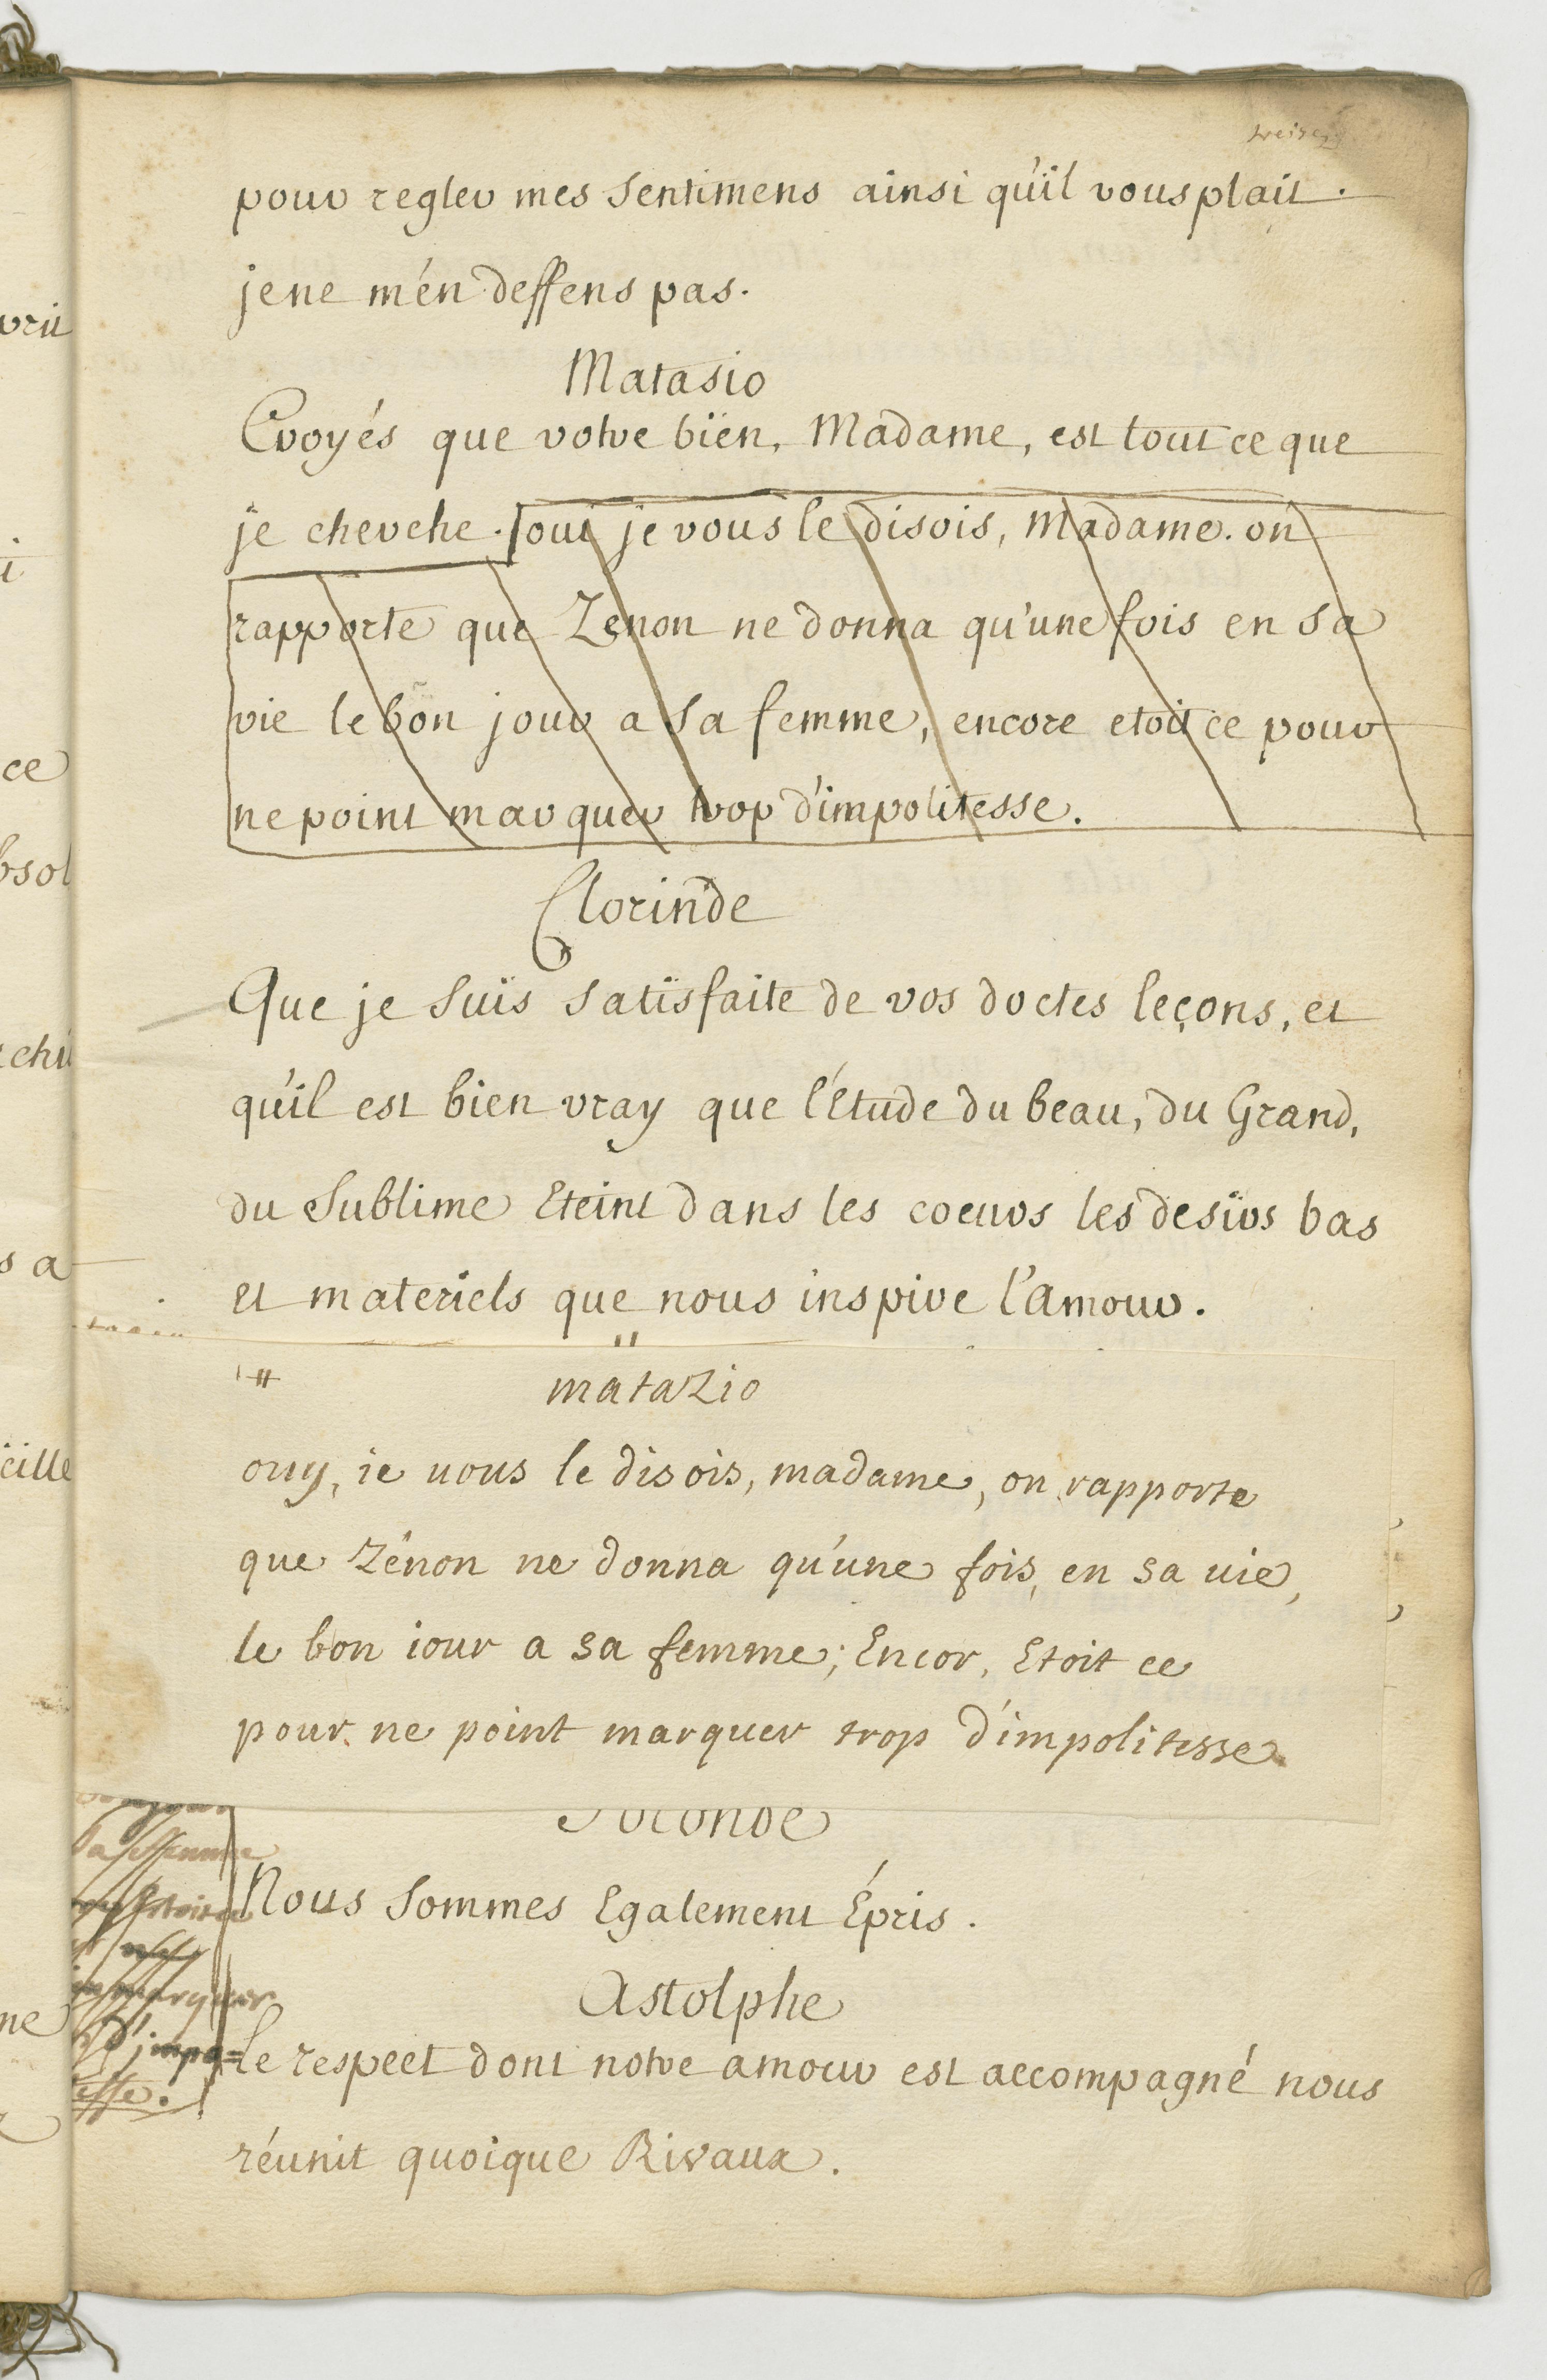 pour regler mes sentimens ainsi qu'il vous plait.
je ne m'én deffens pas.
Matasio
Croyés que votre bïen, Madame, est tout ce que
je cherche. oui je vous le disois, Madame. on
rapporte que Zenon ne donna qu'une fois en sa
vie le bon jour a sa femme, encore etoit ce pour
ne point marquer trop d'impolitesse.
Clorinde
Que je suis satisfaite de vos doctes leçons, et
qu'il est bien vray que l'étude du beau, du Grand,
du Sublime Eteint dans les coeurs les desirs bas
et materiels que nous inspire l'amour.
matazio
ouy, ie uous le disois, madame, on rapporte
que Zénon ne donna qu'une fois, en sa uie,
le bon iour a sa femme; Encor, Etoit ce
pour ne point marquer trop d'impolitesse
Joconde
sa femme
Nous sommes Egalement Épris.
marquer
Astolphe
d'impo=
le respect dont notre amour est accompagné nous
esse.
réunit quoique Rivaux.